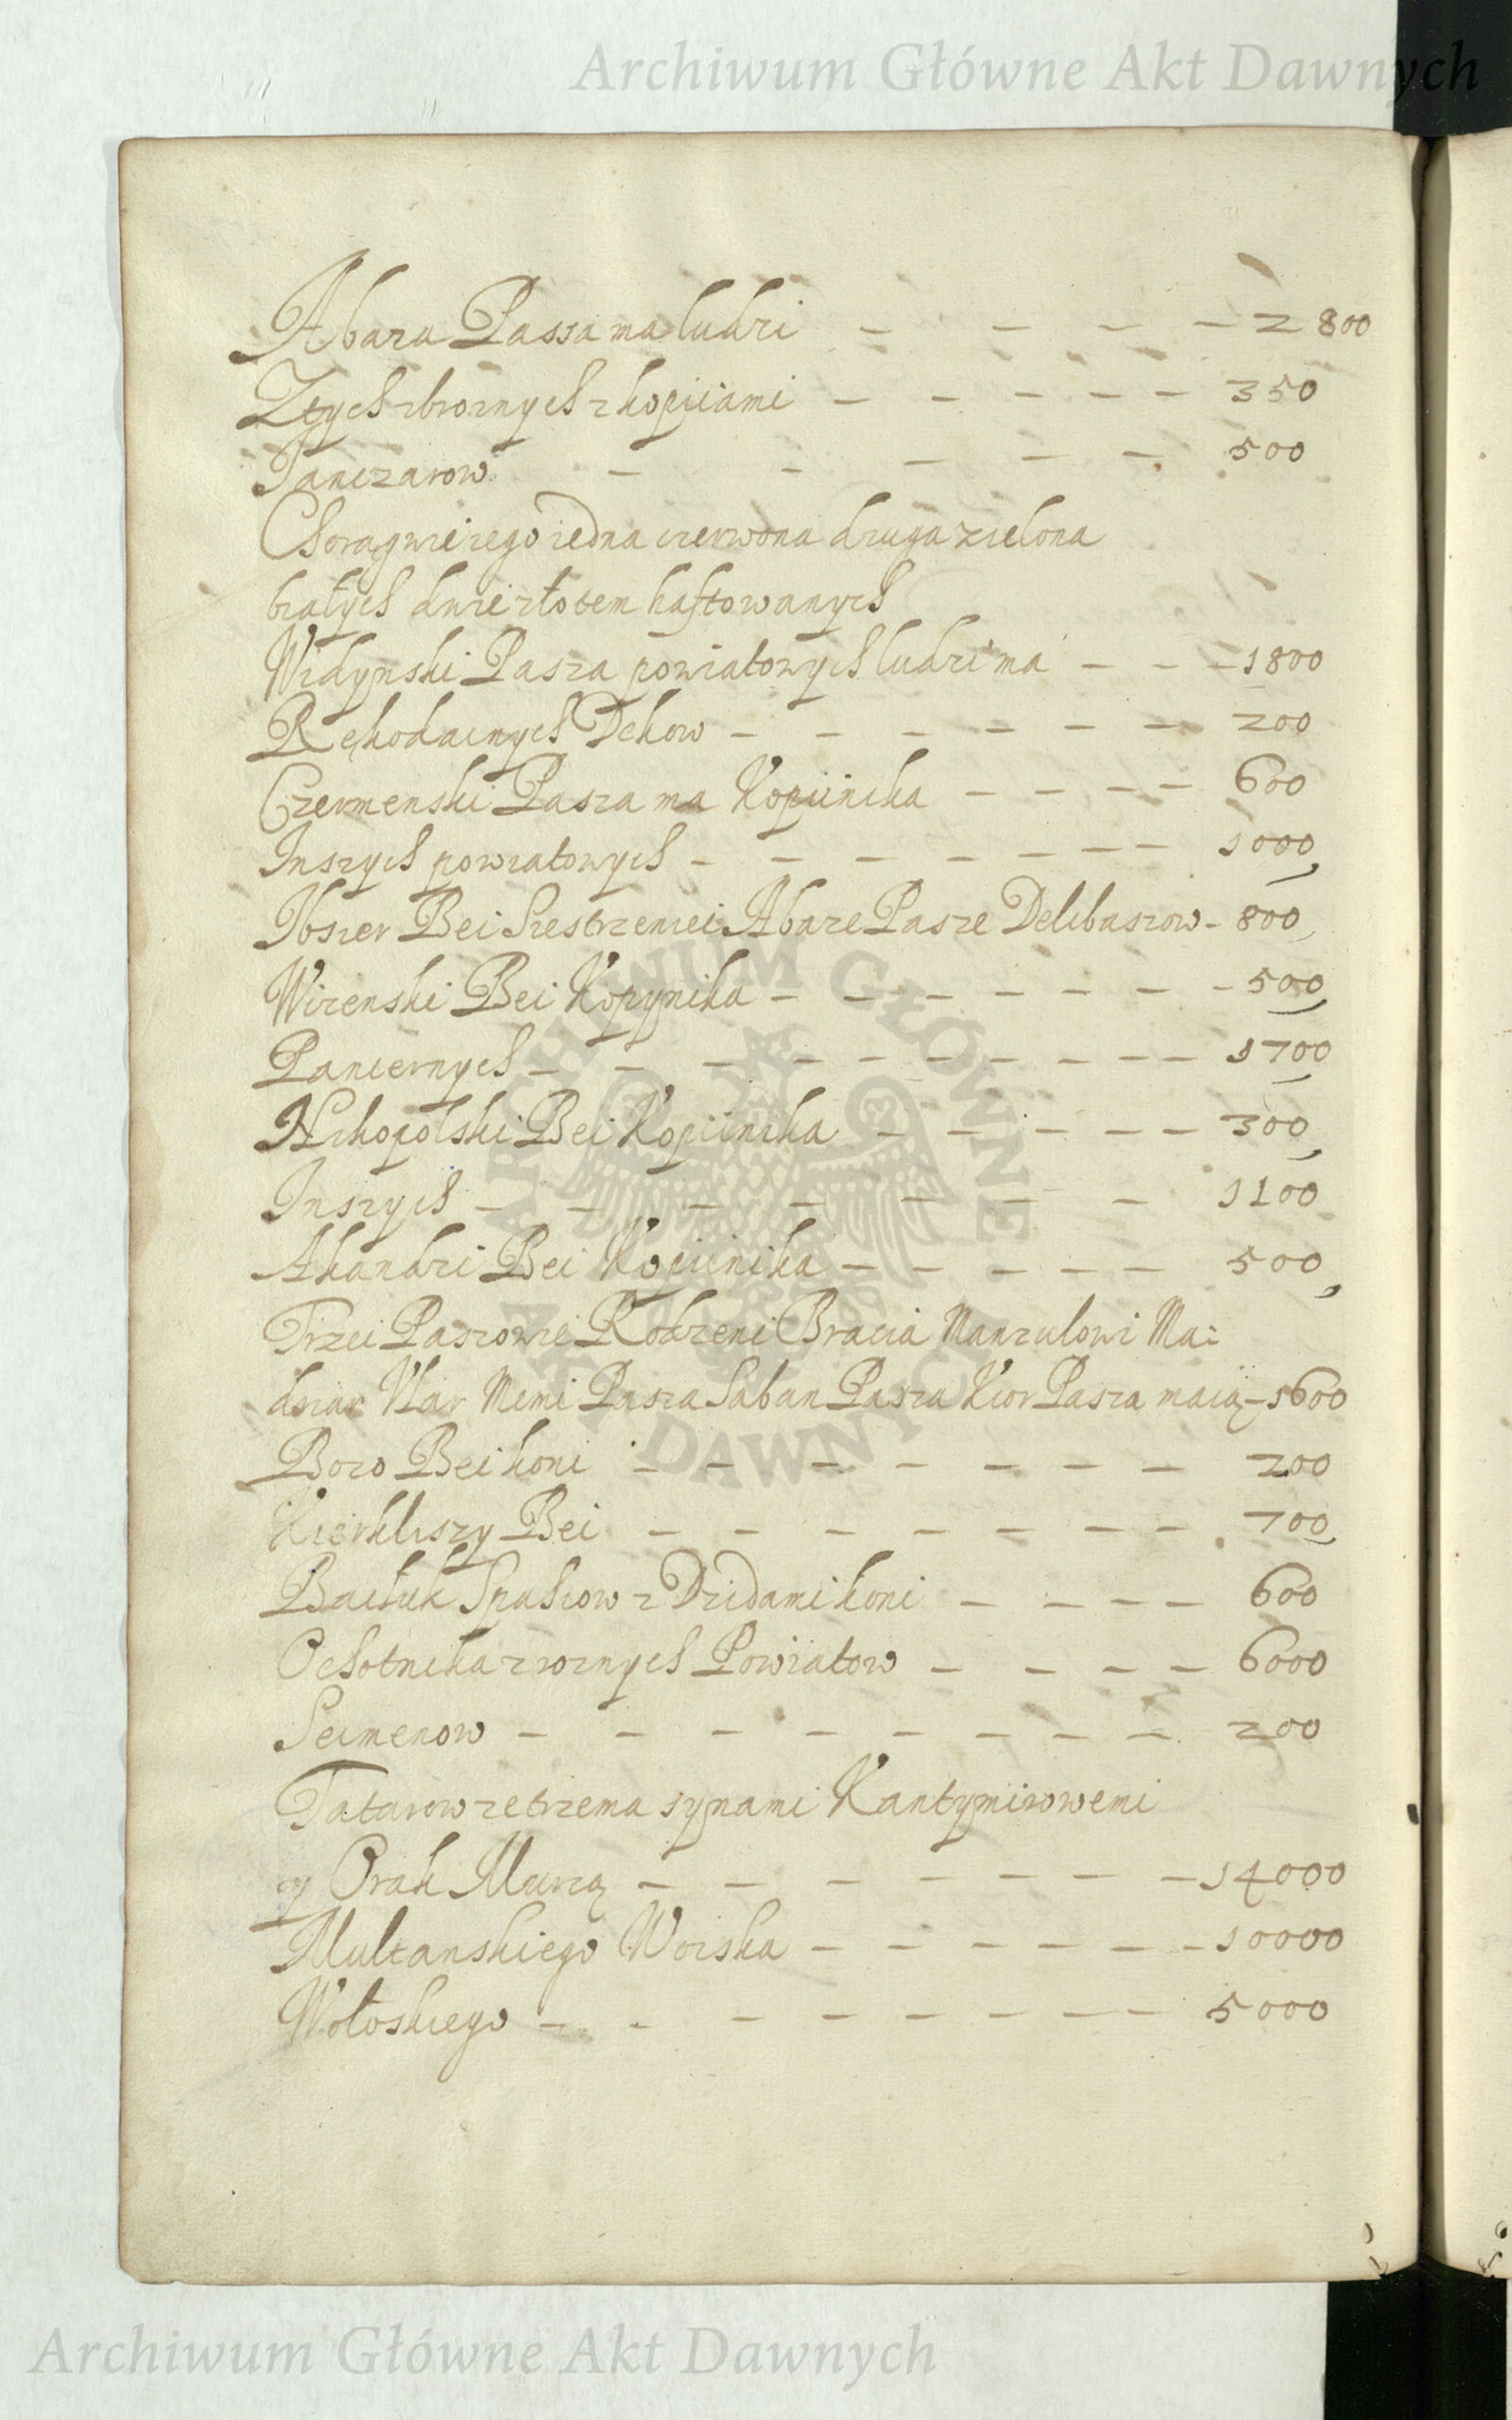 Archiwum Główne Akt Dawnych
Abaza Passa ma ludzi — — — — 2800
Ztych zbroznych z kopiiami — — — — — 350
Janczarow — — — — — 500
Chorągwie iego iedna czerwona druga zielona
białych dwie złotem haftowanych
Widynski Pasza powiatowych ludzi ma — — — 1800
Rękodainych Dekow — — — — — — 200
Czermenski Pasza ma Kopiinika — — — — 600
Inszych powiatowych — — — — — — — 1000
Ibszer Bei Siestrzeniei Abaze Pasze Delibaszow - 800
Wizenski Bei Kopynika — — — — — — — 500
Pancernych — — — — — — — — — 1700
Nikopolski Bei Kopiinika — — — — — 300
Inszych — — — — — — — 1100
Akandzi Bei Kopiinika — — — — — 500
Trzei Paszowie Rodzeni Bracia Manzulowi Ma:
dziar Memi Pasza Saban Pasza Kior Pasza maią - 1600
Bozo Bei koni — — — — — — — 200
Kierkliszy Bei — — — — — — — 700
Spahiow z Dzidami koni — — — — 600
Ochotnika z roznych Powiatow — — — — 6000
Seimenow — — — — — — — — 200
Tatarow ze trzema synami Kantymirowemi
y Orak Murzą — — — — — — — 14000
Multanskiego Woiska — — — — — — 10000
Wołoskiego — — — — — — — 5000
ARCHIWUM GŁÓWNE
AKT DAWNYCH
Archiwum Główne Akt Dawnych